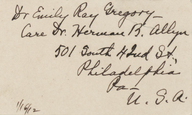 Dr Emily Ray Gregory—
Care Dr. Herman B. Allyn
501 South 42nd St.
Philadelphia
Pa—
U. S. A.